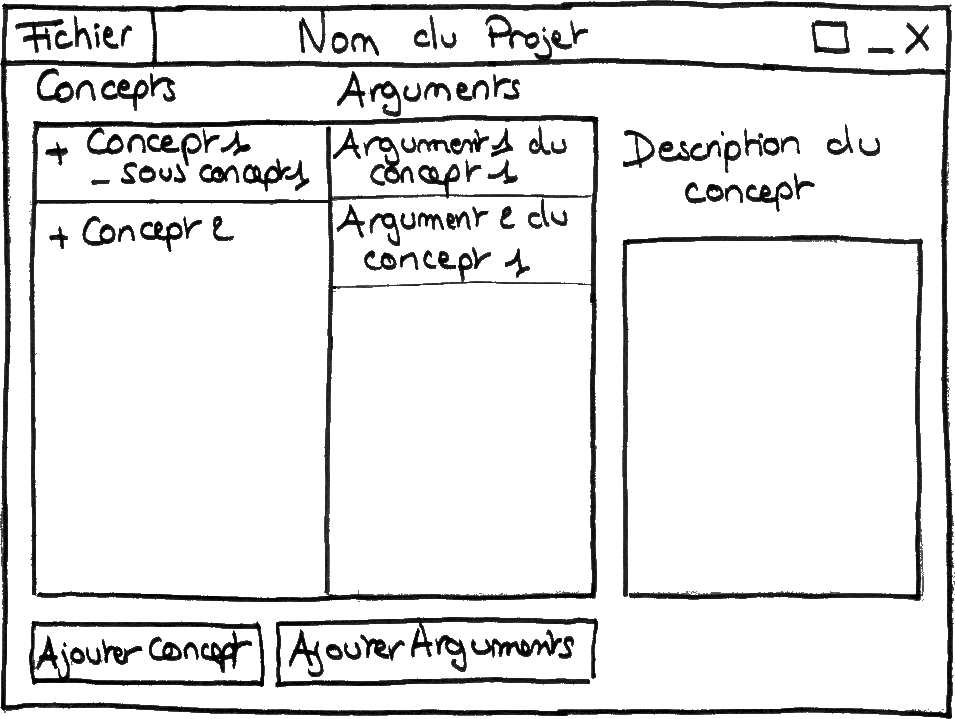 Fichier
Nom du Projet
Concepts
Arguments
+ Concept 1
- sous concept 1
+ Concept 2
Argument 1 du
concept 1
Argument 2 du
concept 1
Description du
concept
Ajouter Concept
Ajouter Arguments